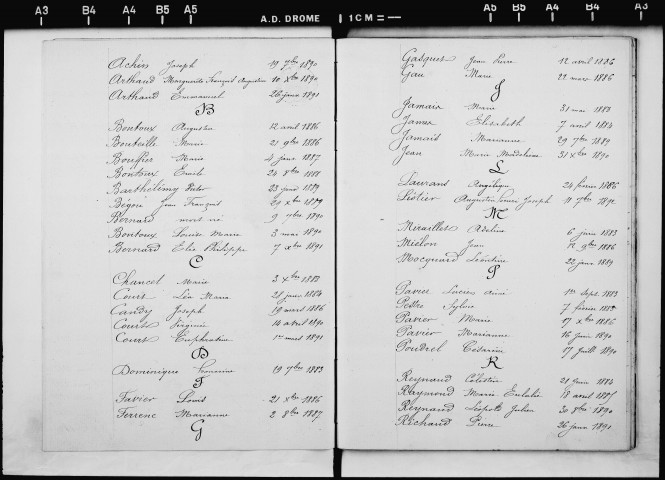 A3 B4 A4 A5 A.D. DROME 1CM= A5 B5 A4 B4 A3
Achin Joseph 19 7bre 1890
Arthaud Marguerite François Augustine 10 Xbre 1890
Arthaud Emmanuel 26 janv 1891
B
Bontoux Augusta 12 avril 1886
Bouteille Marie 21 9bre 1886
Bouffier Marie 4 janv 1887
Bontoux Emile 24 8bre 1888
Barthélémy Victor 23 janv 1889
Bégou Jean François 29 Xbre 1889
Bernard mort né 9 7bre 1890
Bontoux Louise Marie 3 mai 1890
Bernard Elie Philippe 7 Xbre 1890
C
Chancel Marie 3 Xbre 1883
Court Léa Marie 28 janv 1884
Candy Joseph 19 mars 1886
Court Virginie 14 avril 1890
Court Euphrasine 1er mars 1891
D
Dominique 19 7bre 1883
F
Favier Louis 21 Xbre 1886
Ferrenc Marianne 2 8bre 1887
G
Gasquet Jean Pierre 12 avril 1886
Gau Marie 22 mars 1886
J
Jamaix Marie 31 mai 1883
James Elisabeth 7 avril 1884
Jamais Marianne 29 7bre 1889
Jean Marie Madeleine 31 Xbre 1890
L
Laurans Angélique 24 février 1886
Augustin Louis Joseph 11 7bre 1890
M
Miraillet Adeline 6 janv 1883
Miélon Jean 12 9bre 1886
Mocquard Léontine 22 janv 1889
P
Pavier Lucres Aimé 1er Sept 1883
Petre Sylvie 7 février 1883
Pavier Marie 17 Xbre 1886
Pavier Marianne 16 juin 1890
Poudrel Césarine 17 Juill 1890
R
Reynaud Célestin 28 Juin 1884
Raymond Marie Eulalie 18 avril 1885
Reynaud Léopold Julien 30 8bre 1890
Richaud Pierre 26 janv 1891